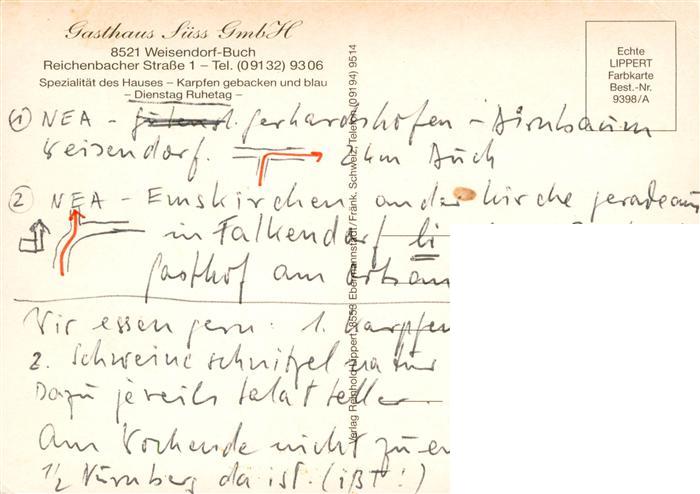 Gasthaus Süss GmbH
8521 Weisendorf-Buch
Reichenbacher Straße 1 – Tel. (09132) 9306
Spezialität des Hauses – Karpfen gebacken und blau
– Dienstag Ruhetag –
Echte
LIPPERT
Farbkarte
Best.-Nr.
9398/A
① NEA - Gerhardshofen - Birnbaum
Weisendorf. 2 km Buch
② NEA - Emskirchen, an der Kirche geradeaus
in Falkendorf li
Gasthof am Ortsan
Wir essen gern: 1. Karpfen
2. Schweineschnitzel natur
Dazu jeweils Salatteller
Am Wochende nicht zu
1/2 Nürnberg da ist. (ißt!)
Verlag Reinhold Lippert, 8553 Ebermannstadt/Fränk. Schweiz, Telefon (09194) 9514